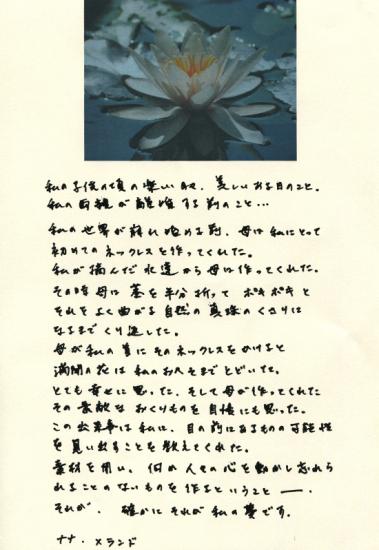 私の子供の頃の楽しい夏、美しいある日のこと。
私の両親が離婚する前のこと…
私の世界が崩れ始める前、母は私にとって
初めてのネックレスを作ってくれた。
私が摘んだ水蓮から母は作ってくれた。
その時母は茎を半分折って ポキポキと
それをよく曲がる自然の真珠のくさりに
なるまでくり返した。
母が私の首にそのネックレスをかけると
満開の花は私のおへそまでとどいた。
とても幸せに思った、そして母が作ってくれた
その素敵なおくりものを自慢にも思った。
この出来事は私に、目の前にあるものの可能性
を見い出すことを教えてくれた。
素材を用い、何か人々の心を動かし忘れら
れることのないものを作るということ ー 。
それが、確かにそれが私の夢です。
ナナ・メランド